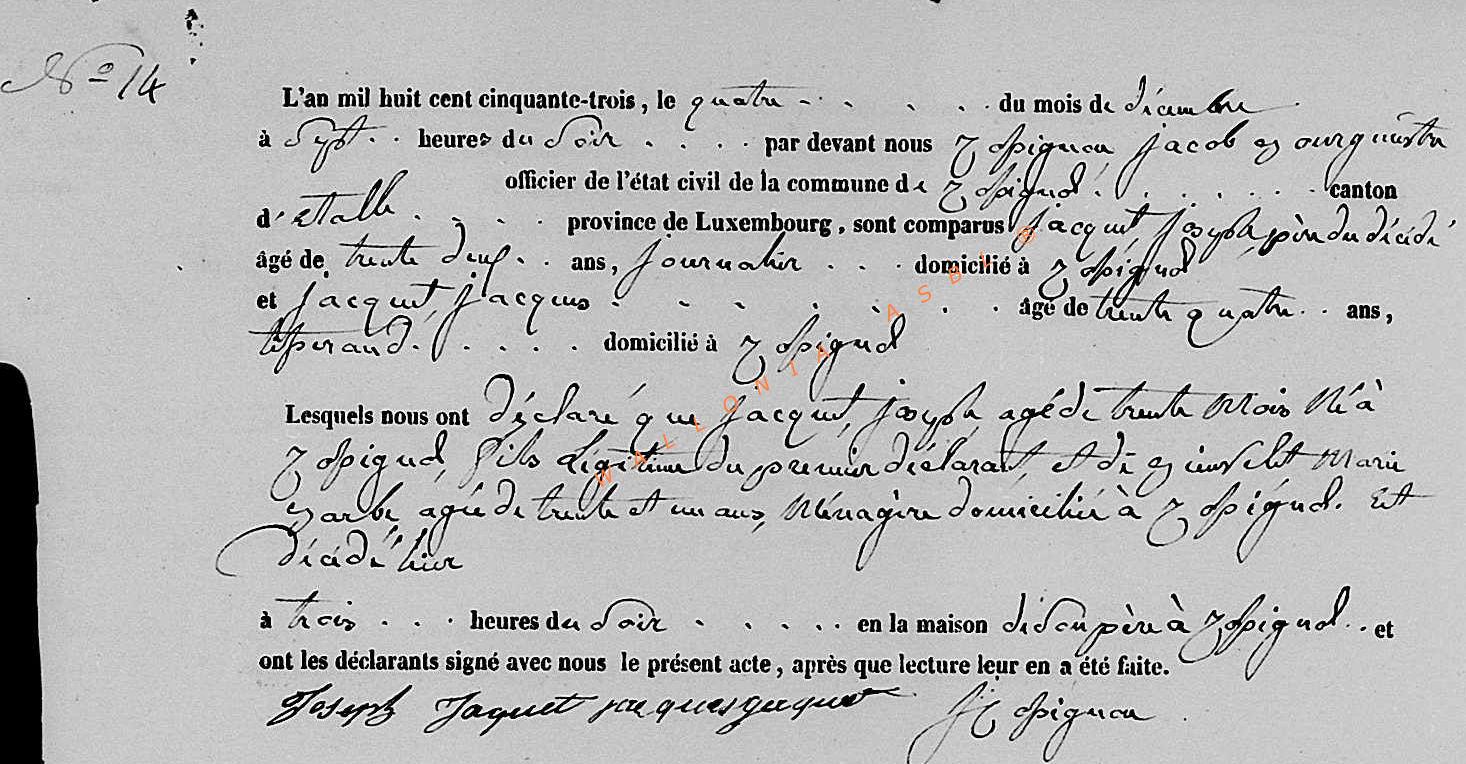 N° 14
L'an mil huit cent cinquante-trois, le quatre . . . . . du mois de décembre
à Sept . . heures du Soir . . . . par devant nous Rossignon Jacob Bourgmestre
officier de l'état civil de la commune de Rossignol . . . . . . canton
d'Etalle . . . . province de Luxembourg, sont comparus Jacquet, Joseph, père du décédé
âgé de trente deux . . ans, Journalier . . . domicilié à Rossignol
et Jacquet, Jacques . . . . . . . . âgé de trente quatre . . ans,
tisserand . . . . . domicilié à Rossignol
Lesquels nous ont déclaré que Jacquet, Joseph, agé de trente Mois Né à
Rossignol, fils Légitime du premier déclarant, et de Marie
Barbe, agée de trente et un ans, Ménagère domiciliée à Rossignol. Est
décédé hier
à trois . . . heures du Soir . . . . . en la maison de Son père à Rossignol . . et
ont les déclarants signé avec nous le présent acte, après que lecture leur en a été faite.
Joseph Jaquet jacques Jacquet J Rossignon
WALLONIA ASBL ©